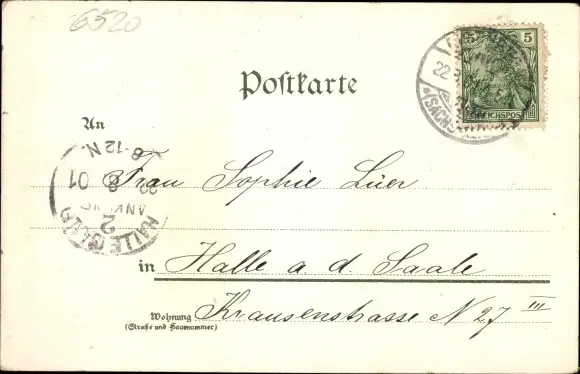 6520
5 5
REICHSPOST
22
(SACHS
Postkarte
An
8-12 N.
01
2
HALLE (SAALE)
Frau Sophie Lüer
in Halle a d. Saale
Wohnung Krausenstrasse N 27 III
(Straße und Hausnummer)